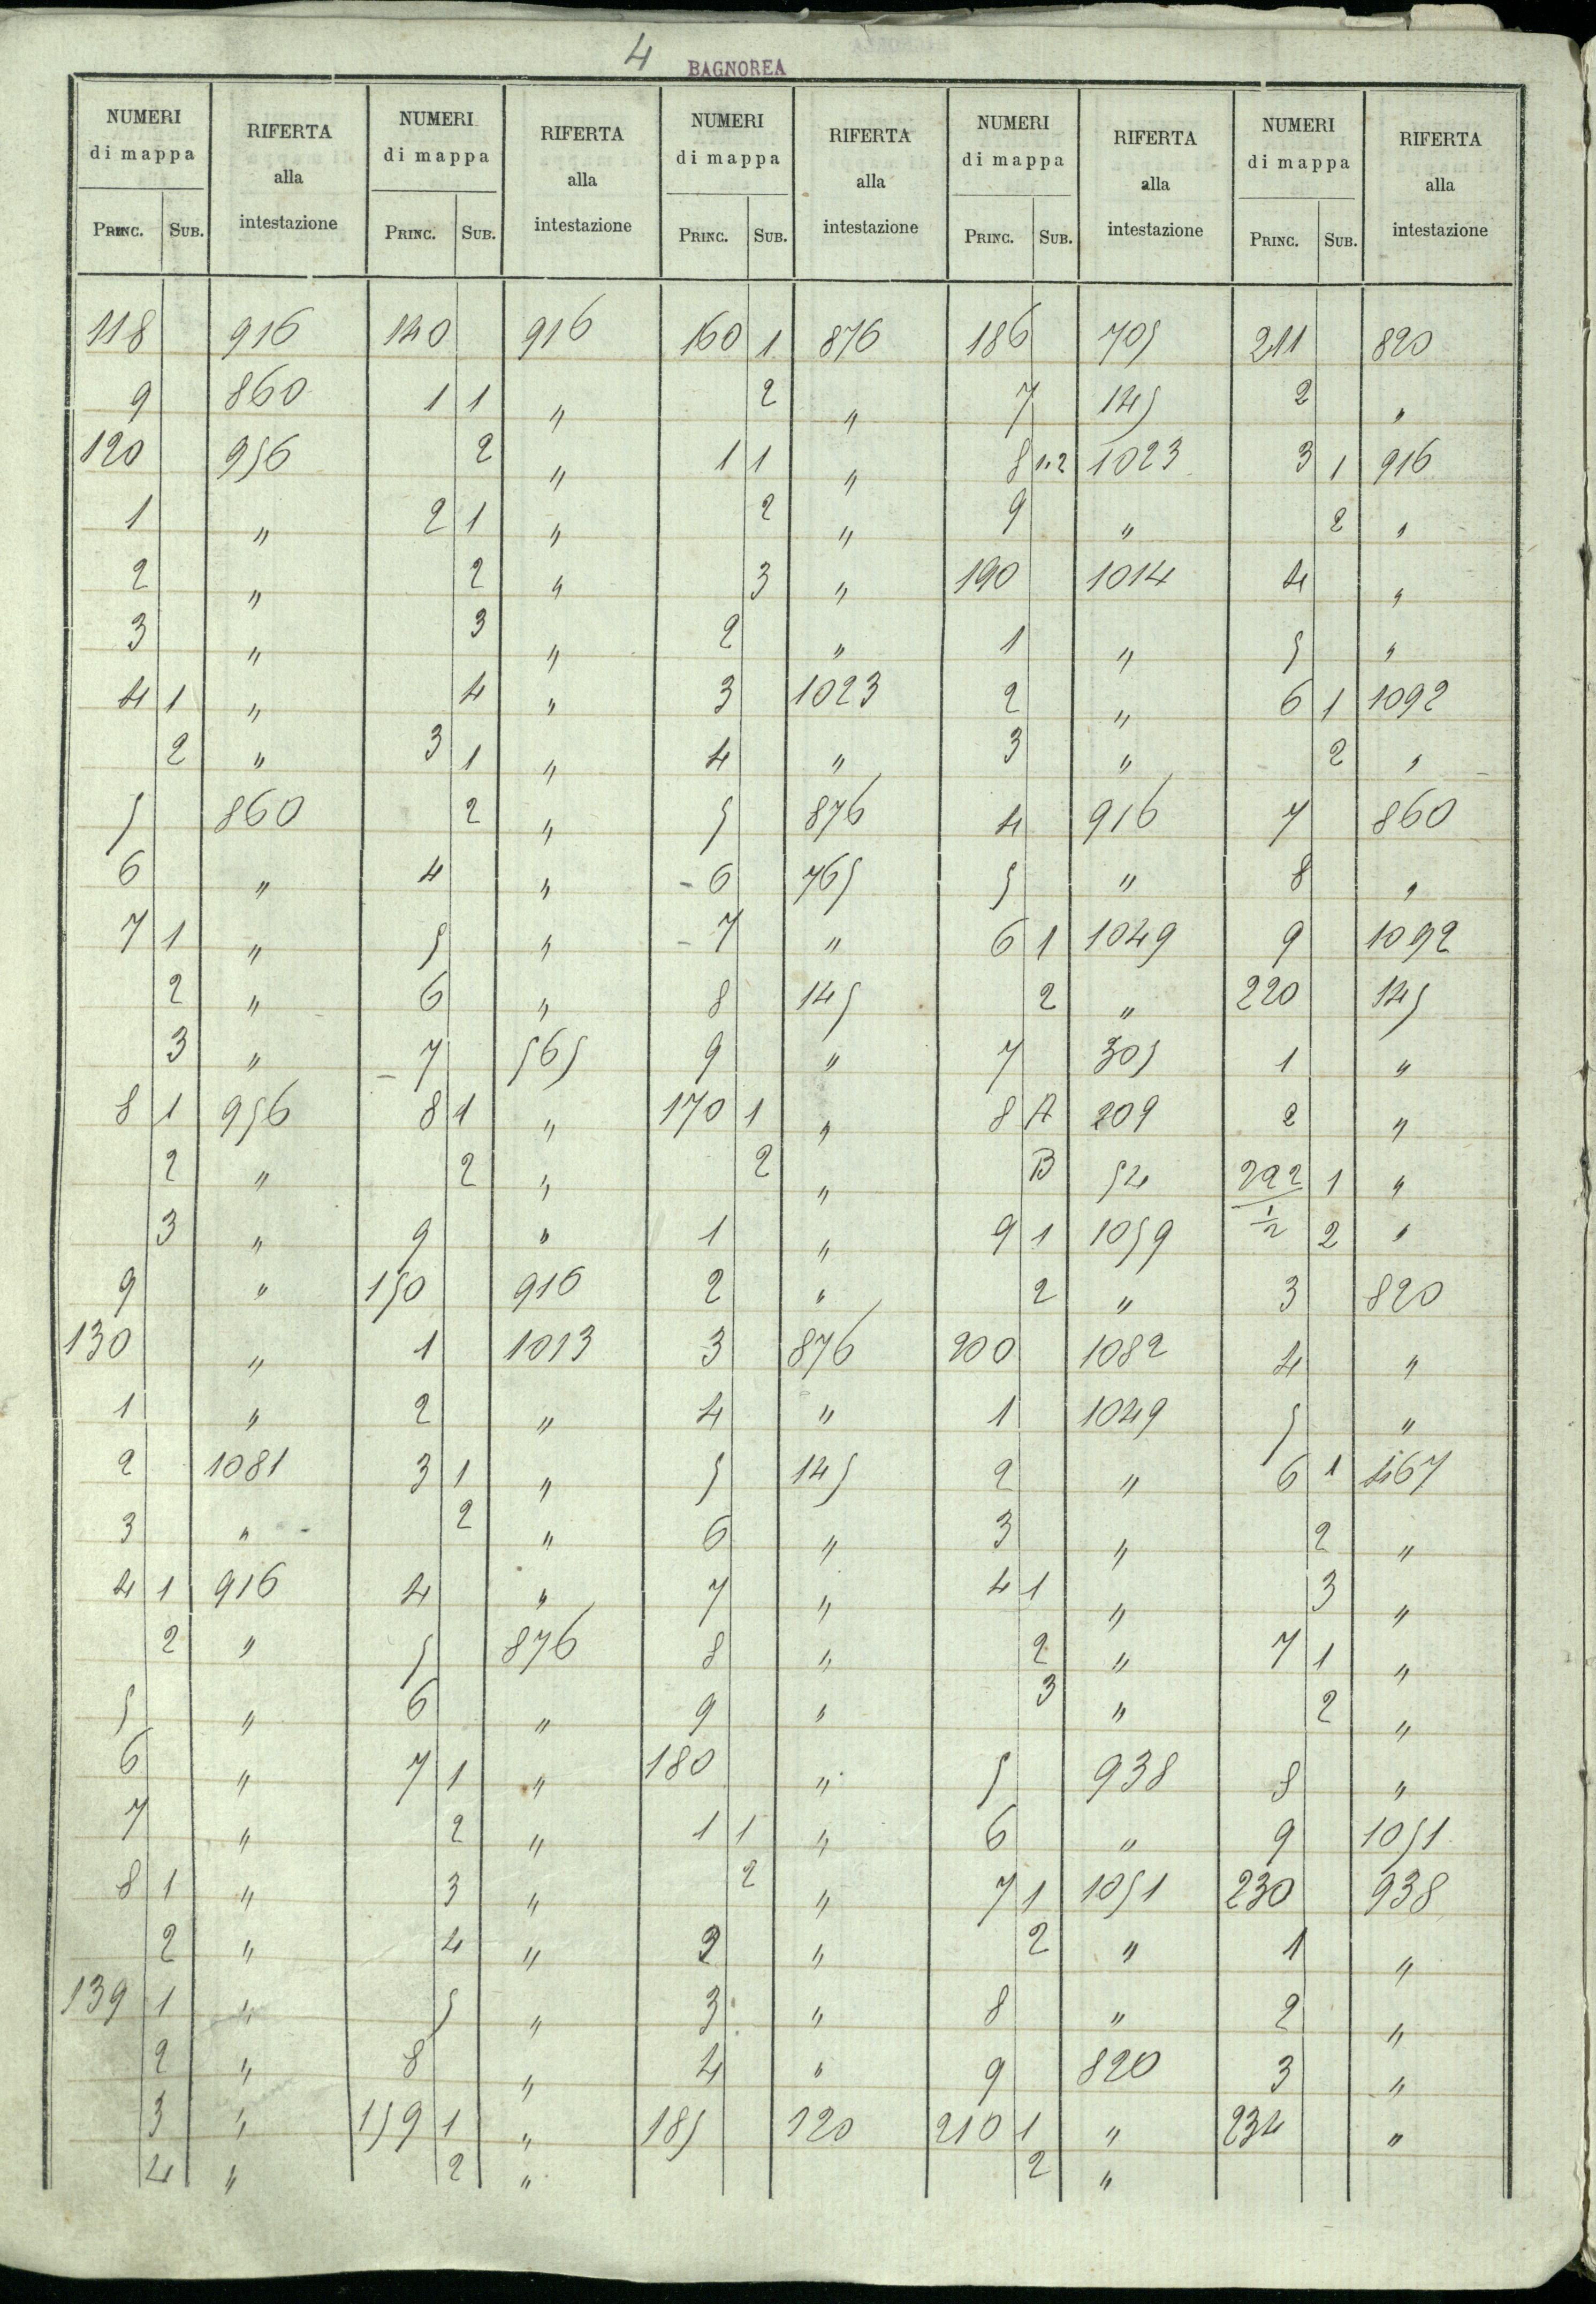 4 BAGNOREA
NUMERI di mappa RIFERTA alla intestazione NUMERI di mappa RIFERTA alla intestazione NUMERI di mappa RIFERTA alla intestazione NUMERI di mappa RIFERTA alla intestazione NUMERI di mappa RIFERTA alla intestazione
PRINC. SUB. PRINC. SUB. PRINC. SUB. PRINC. SUB. PRINC. SUB.
118 916 140 916 160 1 876 186 705 211 820
9 860 1 1 " 2 " 7 145 2 "
120 956 2 " 1 1 " 8 1.2 1023 3 1 916
1 " 2 1 " 2 " 9 " 2 "
2 " 2 " 3 " 190 1014 4 "
3 " 3 " 2 " 1 " 5 "
4 1 " 4 " 3 1023 2 " 6 1 1092
2 " 3 1 " 4 " 3 " 2 "
5 860 2 " 5 876 4 916 7 860
6 " 4 " - 6 765 5 " 8 "
7 1 " 5 " - 7 " 6 1 1049 9 1092
2 " 6 " 8 145 2 " 220 145
3 " - 7 565 9 " 7 305 1 "
8 1 956 8 1 " 170 1 " 8 A 209 2 "
2 " 2 " 2 " B 54 222 1 "
3 " 9 " 1 " 9 1 1059 1/2 2 "
9 " 150 916 2 " 2 " 3 820
130 " 1 1013 3 876 200 1082 4 "
1 " 2 " 4 " 1 1049 5 "
2 1081 3 1 " 5 145 2 " 6 1 467
3 " 2 " 6 " 3 " 2 "
4 1 916 4 " 7 " 4 1 " 3 "
2 " 5 876 8 " 2 " 7 1 "
5 " 6 " 9 " 3 " 2 "
6 " 7 1 " 180 " 5 938 8 "
7 " 2 " 1 1 " 6 " 9 1051
8 1 " 3 " 2 " 7 1 1051 230 938
2 " 4 " 2 " 2 " 1 "
139 1 " 5 " 3 " 8 " 2 "
2 " 8 " 4 " 9 820 3 "
3 " 159 1 " 185 120 210 1 " 234 "
4 " 2 " 2 "